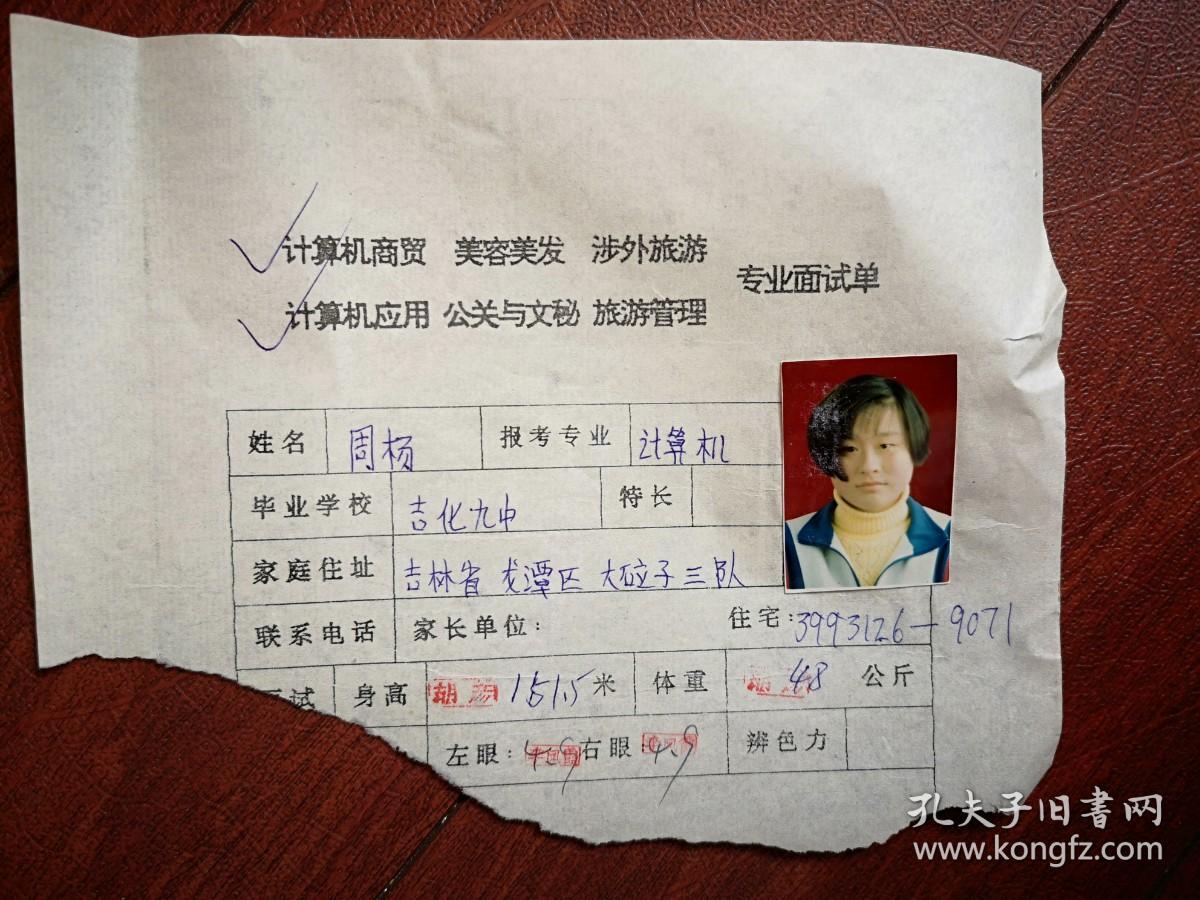 计算机商贸 美容美发 涉外旅游
专业面试单
计算机应用 公关与文秘 旅游管理
姓名 周杨 报考专业 计算机
毕业学校 吉化九中 特长
家庭住址 吉林省龙潭区大砬子三队
联系电话 家长单位: 住宅:3993126-9071
试 身高 151.5米 体重 48 公斤
左眼:4.9 右眼:4.9 辨色力
孔夫子旧书网
www.kongfz.com